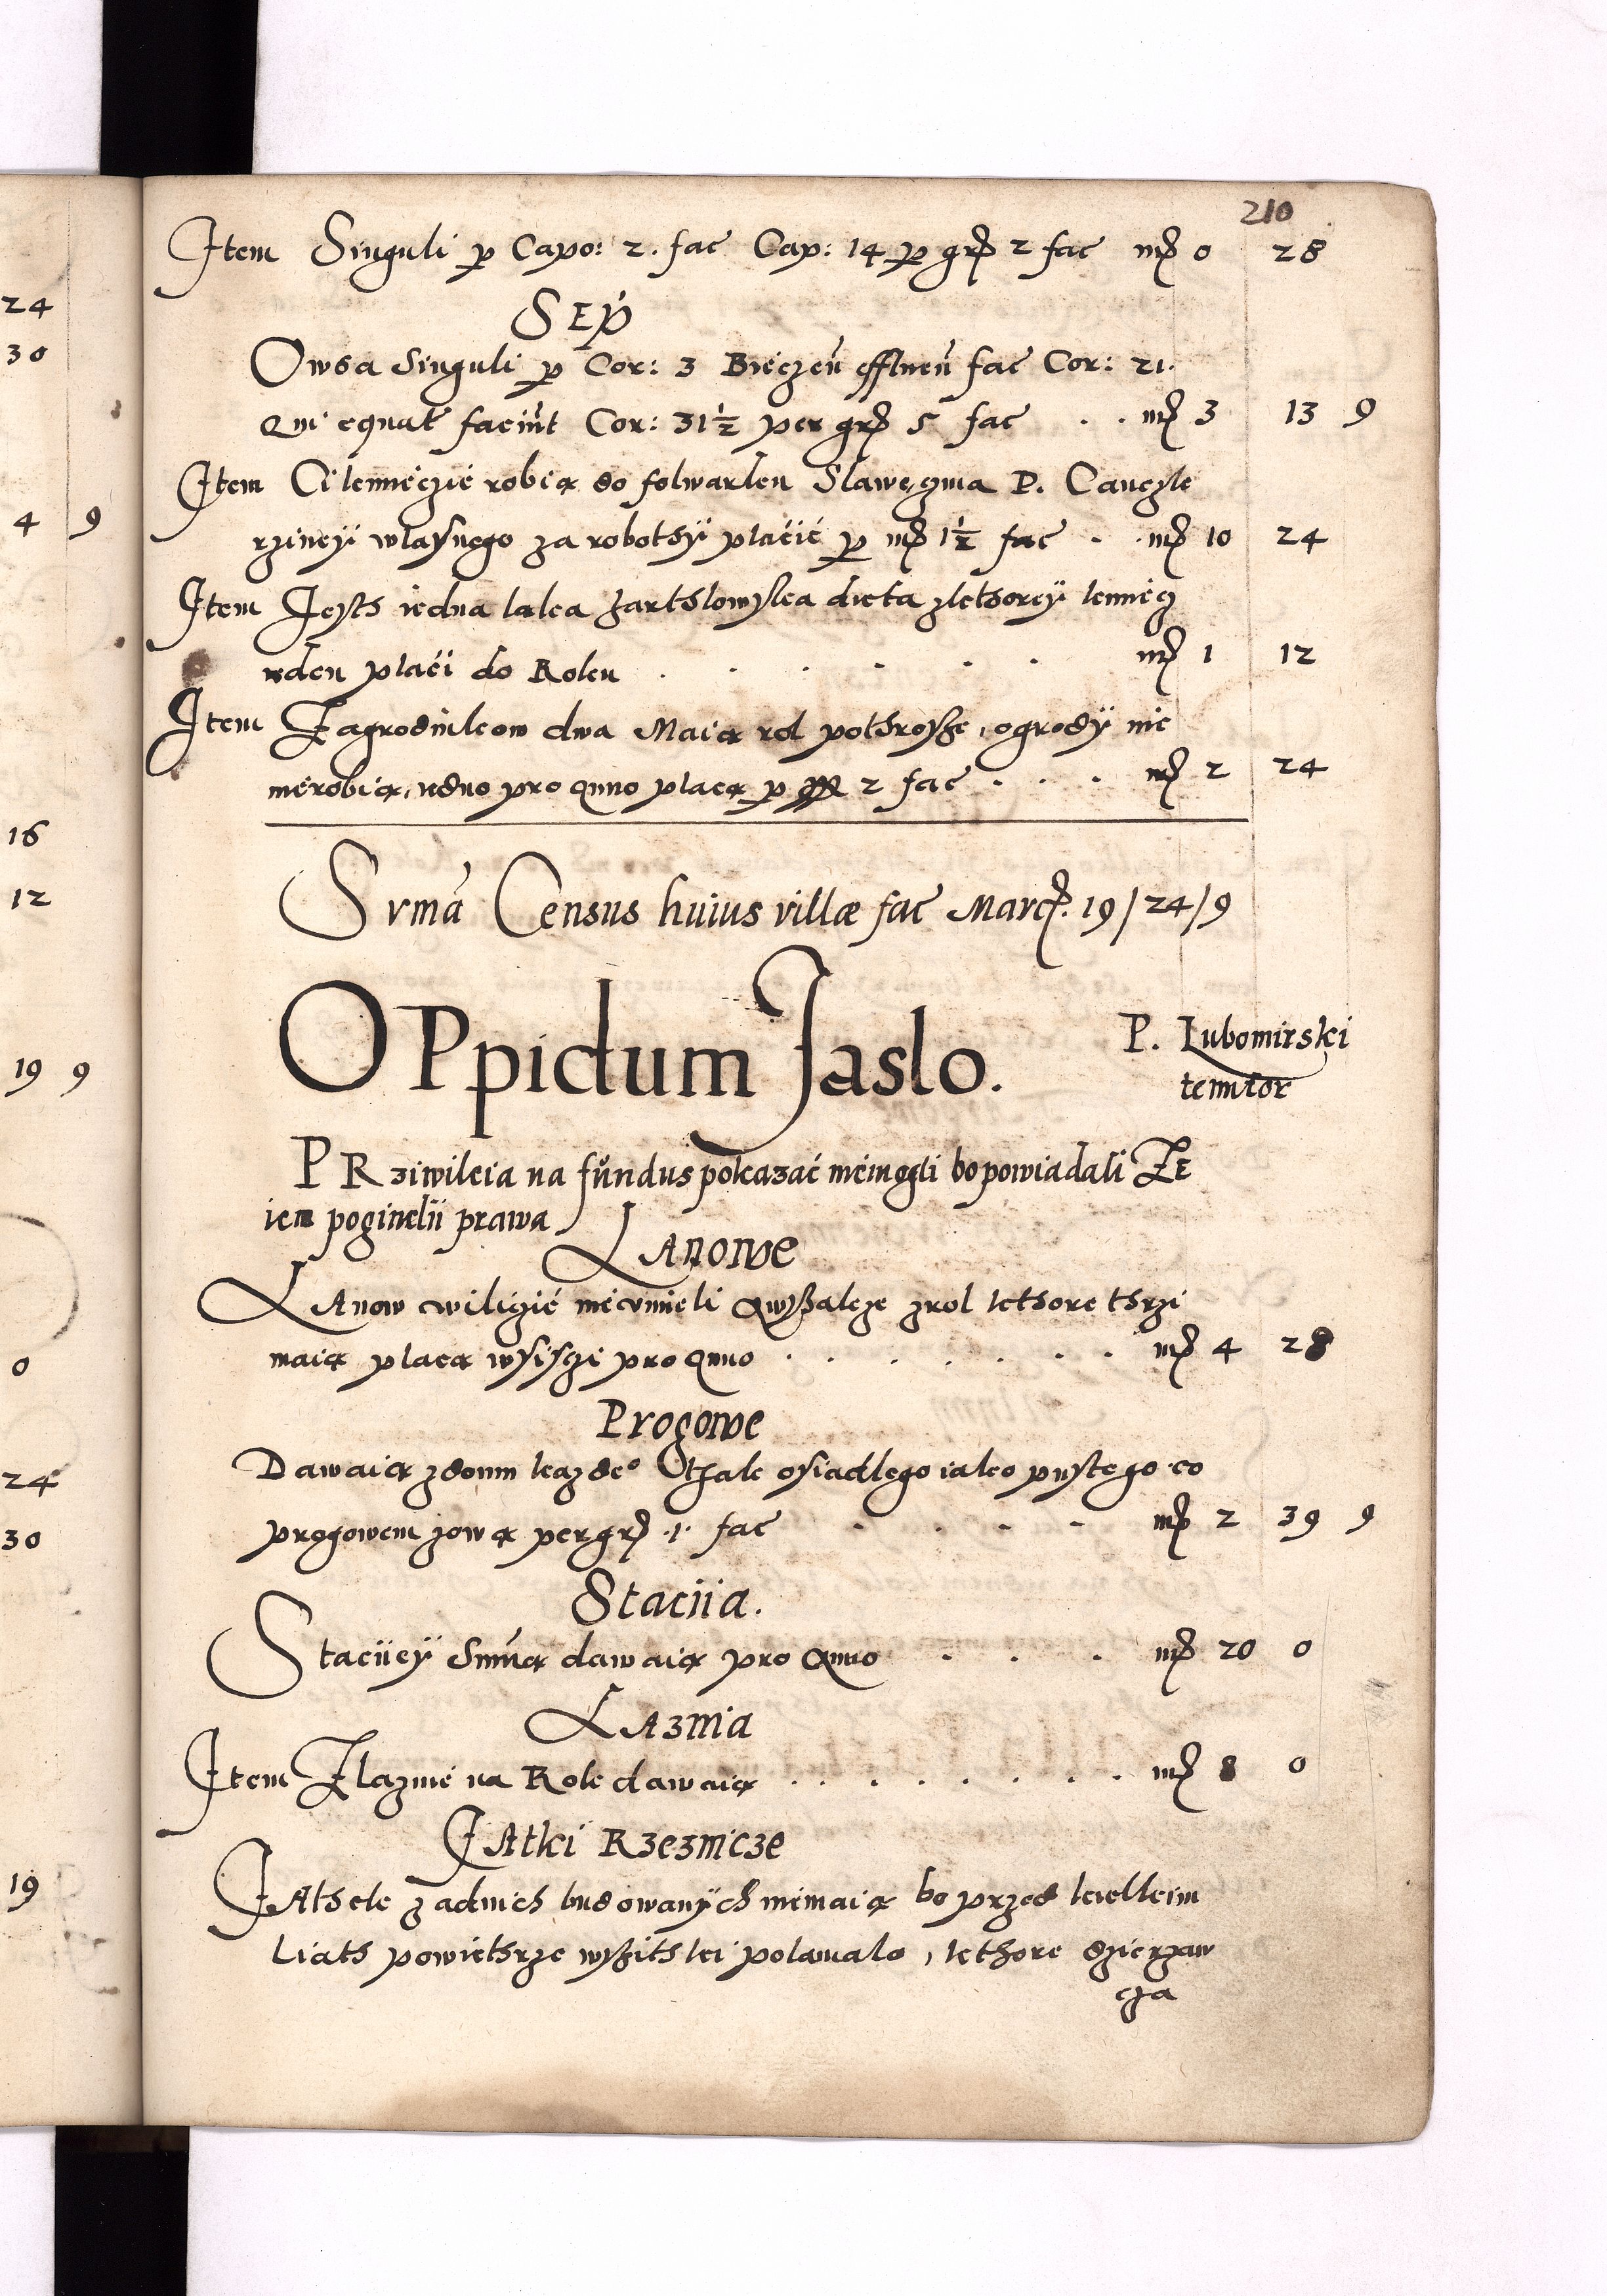 210
Item Singuli p Capo: 2. fac Cap: 14 p grz 2 fac mrz 0 28
SEp
Owsa Singuli p Cor: 3 Bieczen effluen fac Cor: 21.
Qui equat faciunt Cor: 31½ per grz 5 fac . . mrz 3 13 9
Item Ci kmieczie robią do folwarku P. Canczle
rzinei własnego za robothy płacić p mrz 1½ fac . . mrz 10 24
Item Jesth iedna lalka dicta zkthorey kmiecz
ieden płaci do Roku . . . . . mrz 1 12
Item Zagrodnikow dwa Maią rol pothrosze, ogrody nie
nierobią, iedno pro Anno płacą p 2 fac . . . mrz 2 24
Sumā Census huius villæ fac Marc. 19/24/9
OPpidum Jaslo.
P. Lubomirski
tenutor
PRziwileia na fundus pokazać niemogli bo powiadali ZE
iem poginelii prawa
LAnowe
LAnow cwiliczić nieumieli Awszakze zrol kthore thrzi
maią płacą wszisczi pro Anno . . . . . . mrz 4 28
Progowe
Dawaią zdomu kazdeo thak osiadlego iako pustego co
progowem zową per grz .1. fac . . . . mrz 2 39 9
Staciia.
Staciiey Summą dawaią pro Anno . . . mrz 20 0
LAznia
Item Zlaznie na Rok dawaią . . . . . . . mrz 8 0
JAtki Rzeznicze
JAthek zadnich budowanych niemaią bo przed kielkiem
liath powiethrze wszithki polamalo, kthore dzierzaw
cza
24
30
4 9
16
12
19 9
0
24
30
19